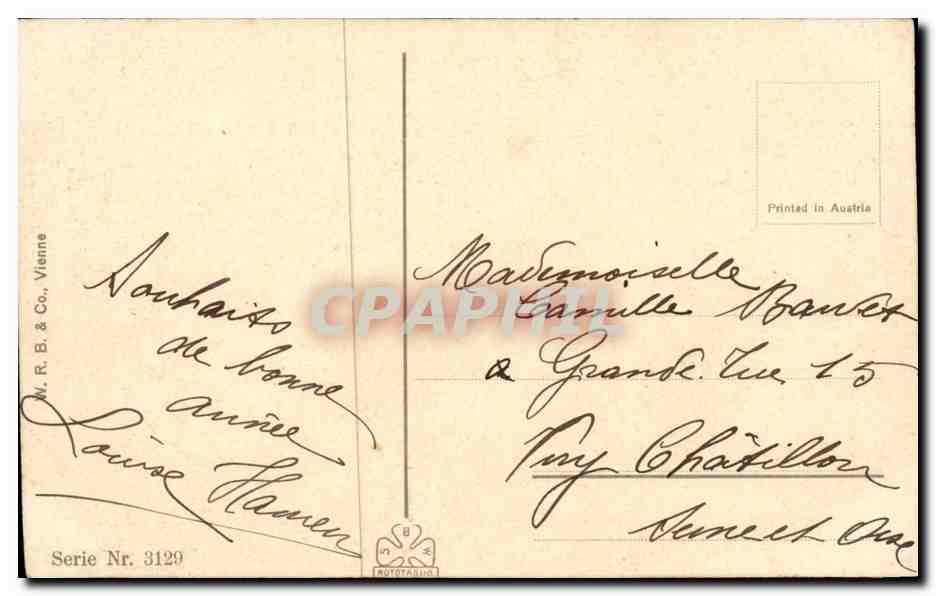 W. R. B. & Co., Vienne
Souhaits
de bonne
année
Louise Hamen
Serie Nr. 3129
S B W
Printed in Austria
Mademoiselle
Camille
à Grande Rue 15
Viry Châtillon
Seine et Oise
CPAPHIL